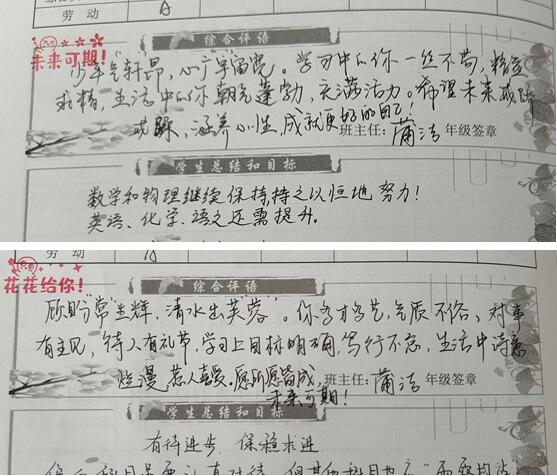 劳动 A
未来可期!
综合评语
少年气轩昂,心广宇留院。学习中的你一丝不苟,精益
求精,生活中的你朝气蓬勃,充满活力。希望未来戒骄
戒躁,涵养心性,成就更好的自己!
班主任: 蒲洁 年级签章
学生总结和目标
数学和物理继续保持,持之以恒地努力!
英语、化学、语文还需提升。
劳动 A
花花给你!
综合评语
顾盼“常”生辉,清水出“芙”蓉”。你多才多艺,气质不俗,对事
有主见,待人有礼节,学习上目标明确,笃行不怠,生活中诗意
烂漫,惹人喜爱。愿所愿皆成,
未来可期!
班主任: 蒲洁 年级签章
学生总结和目标
有待进步 保稳求进